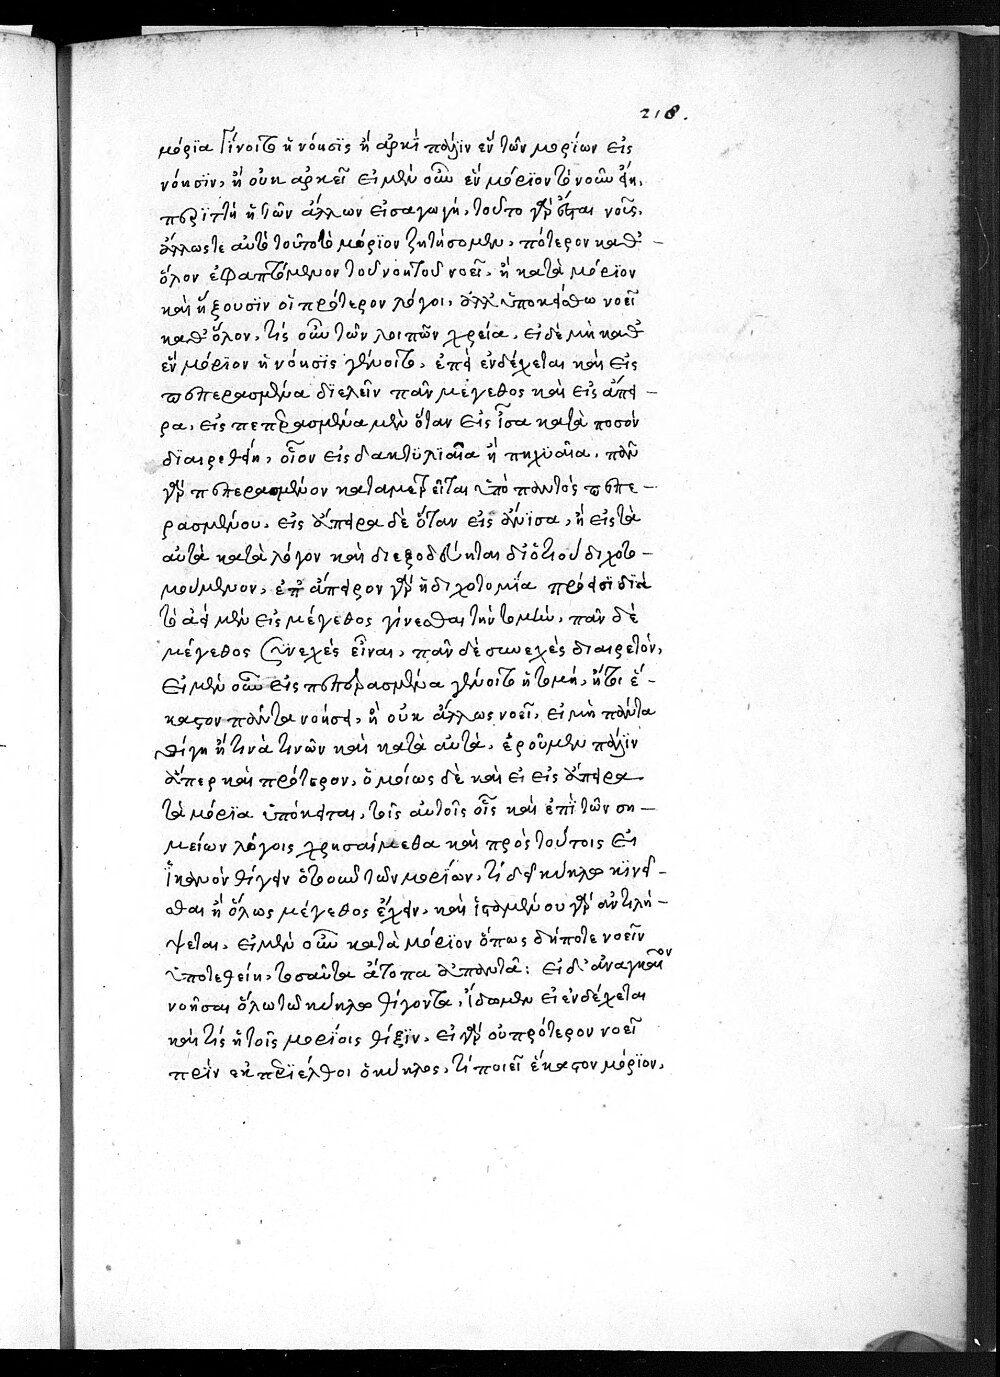 218.
μόρϊα γίνοιτο ἡ νόησϊς ἢ ἀρκεῖ πάλϊν ἓν τῶν μορίων εἰς
νόησϊν, ἢ οὐκ ἀρκεῖ εἰ μὲν οὖν ἓν μόρϊον τὸ νοοῦν εἴη,
περϊττὴ ἡ τῶν ἄλλων εἰσαγωγή, τοῦτο γὰρ ἔσται νοῦς,
ἄλλως τε αὐτὸ τοῦτο τὸ μόρϊον ζητήσομεν, πότερον καθ᾽
ὅλον ἐφαπτόμενον τοῦ νοητοῦ νοεῖ, ἢ κατὰ μόρϊον
καὶ ἥξουσϊν οἱ πρότερον λόγοι, ἀλλ᾽ ὑποκείσθω νοεῖ
καθ᾽ ὅλον, τίς οὖν τῶν λοιπῶν χρεία, εἰ δὲ μὴ καθ᾽
ἓν μόρϊον ἡ νόησϊς γένοιτο, ἐπεὶ ἐνδέχεται καὶ εἰς
πεπερασμένα διελεῖν πᾶν μέγεθος καὶ εἰς ἄπει
ρα, εἰς πεπερασμένα μὲν ὅταν εἰς ἴσα κατὰ ποσὸν
διαιρεθείη, οἷον εἰς δακτυλιαῖα ἢ πηχϋαῖα, πᾶν
γὰρ πεπερασμένον καταμετρεῖται ὑπὸ παντὸς πεπε
ρασμένου, εἰς ἄπειρα δὲ ὅταν εἰς ἄνϊσα, ἢ εἰς τὰ
αὐτὰ κατὰ λόγον καὶ διεξοδεύηται διότιοῦ διχοτο
μούμενον, ἐπ᾽ ἄπειρον γὰρ ἡ διχοτομία πρόεισϊ διὰ
τὸ ἀεὶ μὲν εἰς μέγεθος γίνεσθαι τὴν τομὴν, πᾶν δὲ
μέγεθος συνεχὲς εἶναι, πᾶν δὲ συνεχὲς διαιρετόν,
εἰ μὲν οὖν εἰς πεπερασμένα γένοιτο ἡ τομή, ἤτοι ἕ
καστον πάντα νοήσει, ἢ οὐκ ἄλλως νοεῖ, εἰ μὴ πάντα
θίγη ἤ τινὰ τινῶν καὶ κατὰ αὐτὰ, ἐροῦμεν πάλϊν
ἅπερ καὶ πρότερον, ὁμοίως δὲ καὶ εἰ εἰς ἄπειρα
τὰ μόρϊα ὑπόκειται, τοῖς αὐτοῖς οἷς καὶ ἐπὶ τῶν ση
μείων λόγοις χρησαίμεθα καὶ πρὸς τούτοις εἰ
ἱκανὸν θίγειν ὁτῳοῦν τῶν μορίων, τί δεῖ κύκλῳ κϊνεῖ
σθαι ἢ ὅλως μέγεθος ἔχειν, καὶ ἱσταμένου γὰρ ἀντιλή
ψεται, εἰ μὲν οὖν κατὰ μόρϊον ὅπως δήποτε νοεῖν
ὑποτεθείη, τοσαῦτα ἄτοπα ἀπαντᾶ: εἰ δ᾽ ἀναγκαῖον
νοῆσαι ὅλῳ τῷ κύκλῳ θίγοντα, ἴδωμεν εἰ ἐνδέχεται
καὶ τίς ἡ τοῖς μορίοις θίξϊν, εἰ γὰρ οὐ πρότερον νοεῖ
πρὶν ἐκπεριέλθοι ὁ κύκλος, τί ποιεῖ ἕκαστον μόρϊον,